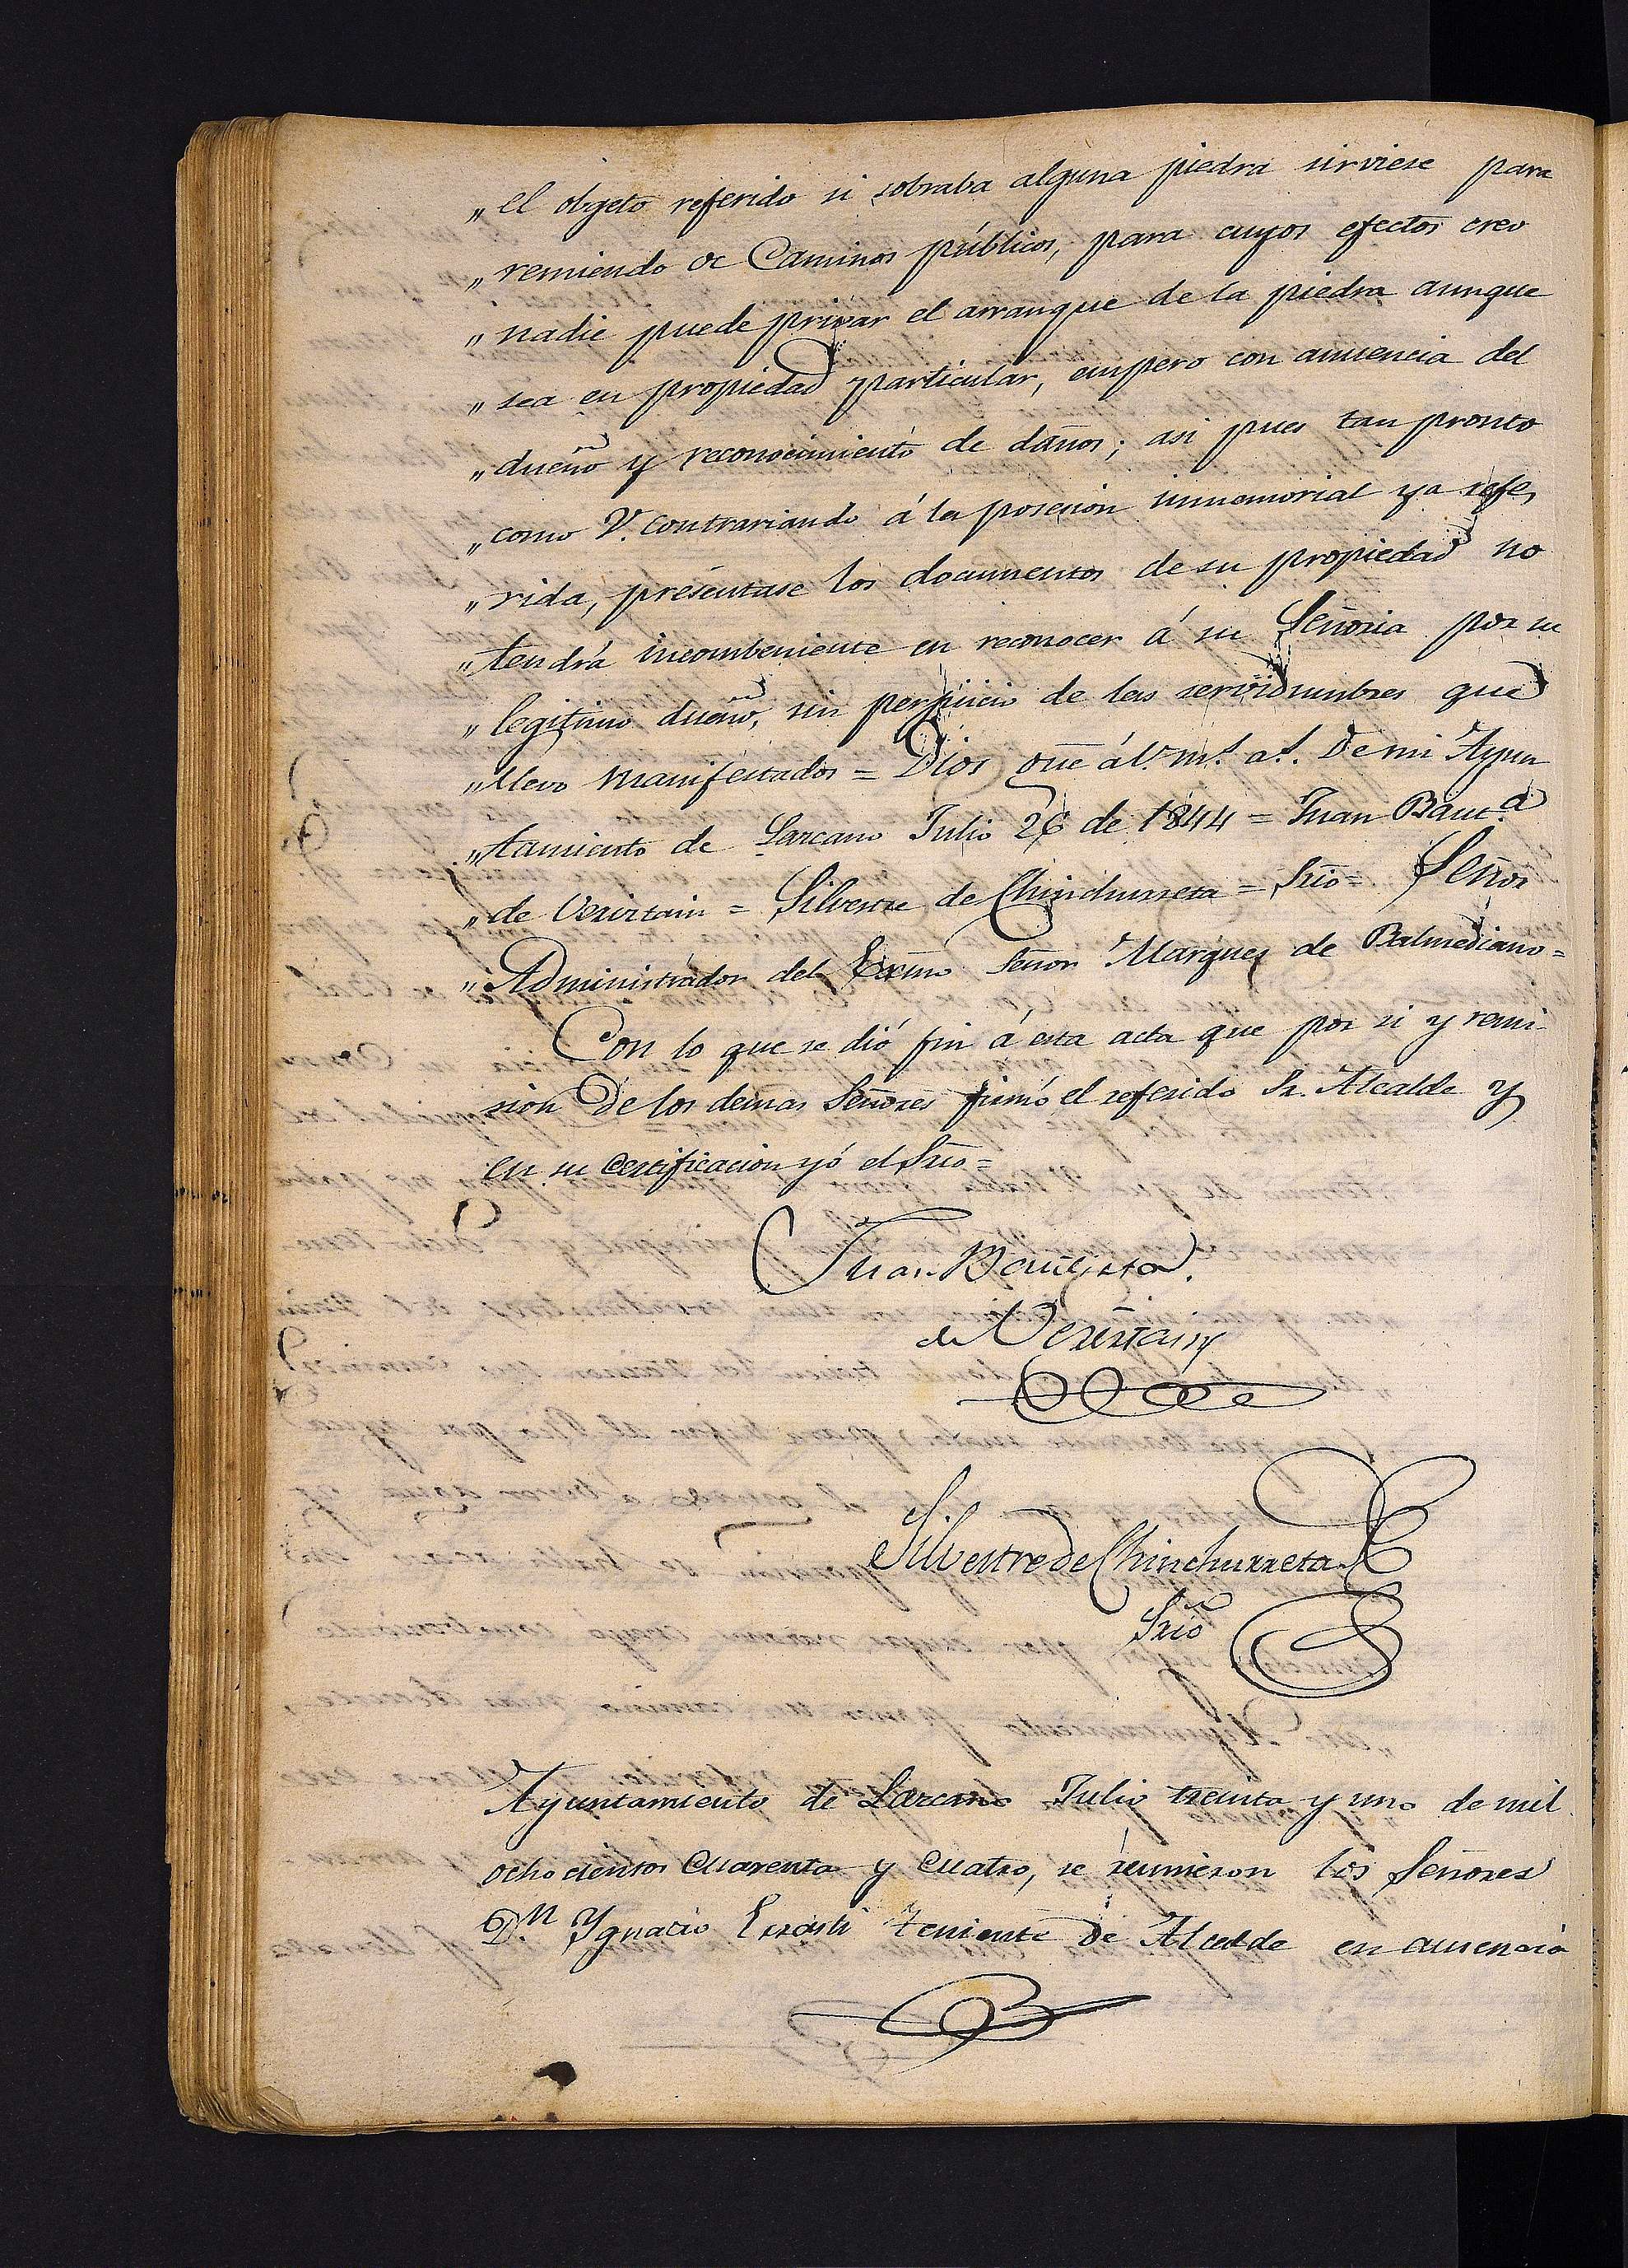 „ el objeto referido si sobraba alguna piedra sirviese para
„ remiendo de Caminos públicos, para cuyos efectos creo
„ nadie puede privar el arranque de la piedra aunque
„ sea en propiedad particular, empero con anuencia del
„ dueño y reconocimiento de daños; asi pues tan pronto
„ como V. contrariando á la posesion inmemorial ya refe,
„ rida, preséntase los documentos de su propiedad no
„ tendrá incombeniente en reconocer á su Señoria por su
„ legitimo dueño, sin perjuicio de las servidumbres que
„ llevo manifestados = Dios gue á V. m.s a.s. De mi Ayun
„ tamiento de Lazcano Julio 26 de 1844 = Juan Baut.a
„ de Verirtain = Silvestre de Chinchurreta = Srio = Señor
„ Administrador del Exmo Señor Marques de Balmediano =
Con lo que se dió fin á esta acta que por si y remi-
sion de los demas Señores firmó el referido Sr. Alcalde y
en su Certificacion yó el Srio =
Juan Bautista
de Verirtain
Silvestre de Chinchurreta
Srio
Ayuntamiento de Lazcano Julio treinta y uno de mil
ocho cientos Cuarenta y Cuatro, se reunieron los Señores
D.n Ygnacio Errasti teniente de Alcalde en ausencia